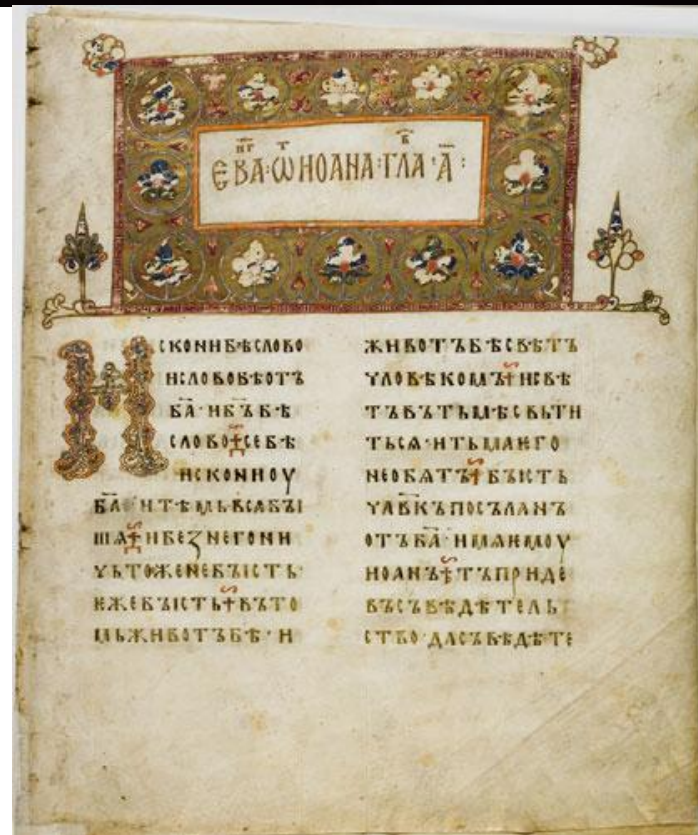 ЕВАнг҃·Ѿт·ИОАНА·ГЛАв҃·А҃·
ИСКОНИБѢСЛОВО
ИСЛОВОБѢОТЪ
БА҃·ИБЪ҃БѢ
СЛОВО·СЕБѢ
ИСКОНИОУ
БА҃·ИТѢМЬВСѦБЪІ
ШѦ·ИБЕЗНЕГОНИ
ЧЬТОЖЕНЕБЪІСТЬ·
ЕЖЕБЪІСТЬ·ВЪТО
МЬЖИВОТЪБѢ·И
ЖИВОТЪБѢСВѢТЪ
ЧЛОВѢКОМЪ·ИСВѢ
ТЪВЪТЬМѢСВЬТИ
ТЬСѦ·ИТЬМАѤГО
НЕОБѦТЪ·БЪІСТЬ
ЧЛВ҃КЪПОСЪЛАНЪ
ОТЪБА҃·ИМѦѤМОУ
ИОАНЪ·ТЪПРИДЕ
ВЪСЪВѢДѢТЕЛЬ
СТВО·ДАСЪВѢДѢТЕ